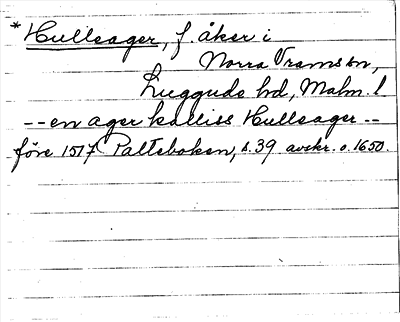 *Hullsager, f. åker i
Norra Vrams sn,
Luggude hd, Malm. l.
-- en ager kalliss Hullsager --
före 1517 Paltsboken, s. 39 avskr. o. 1650.